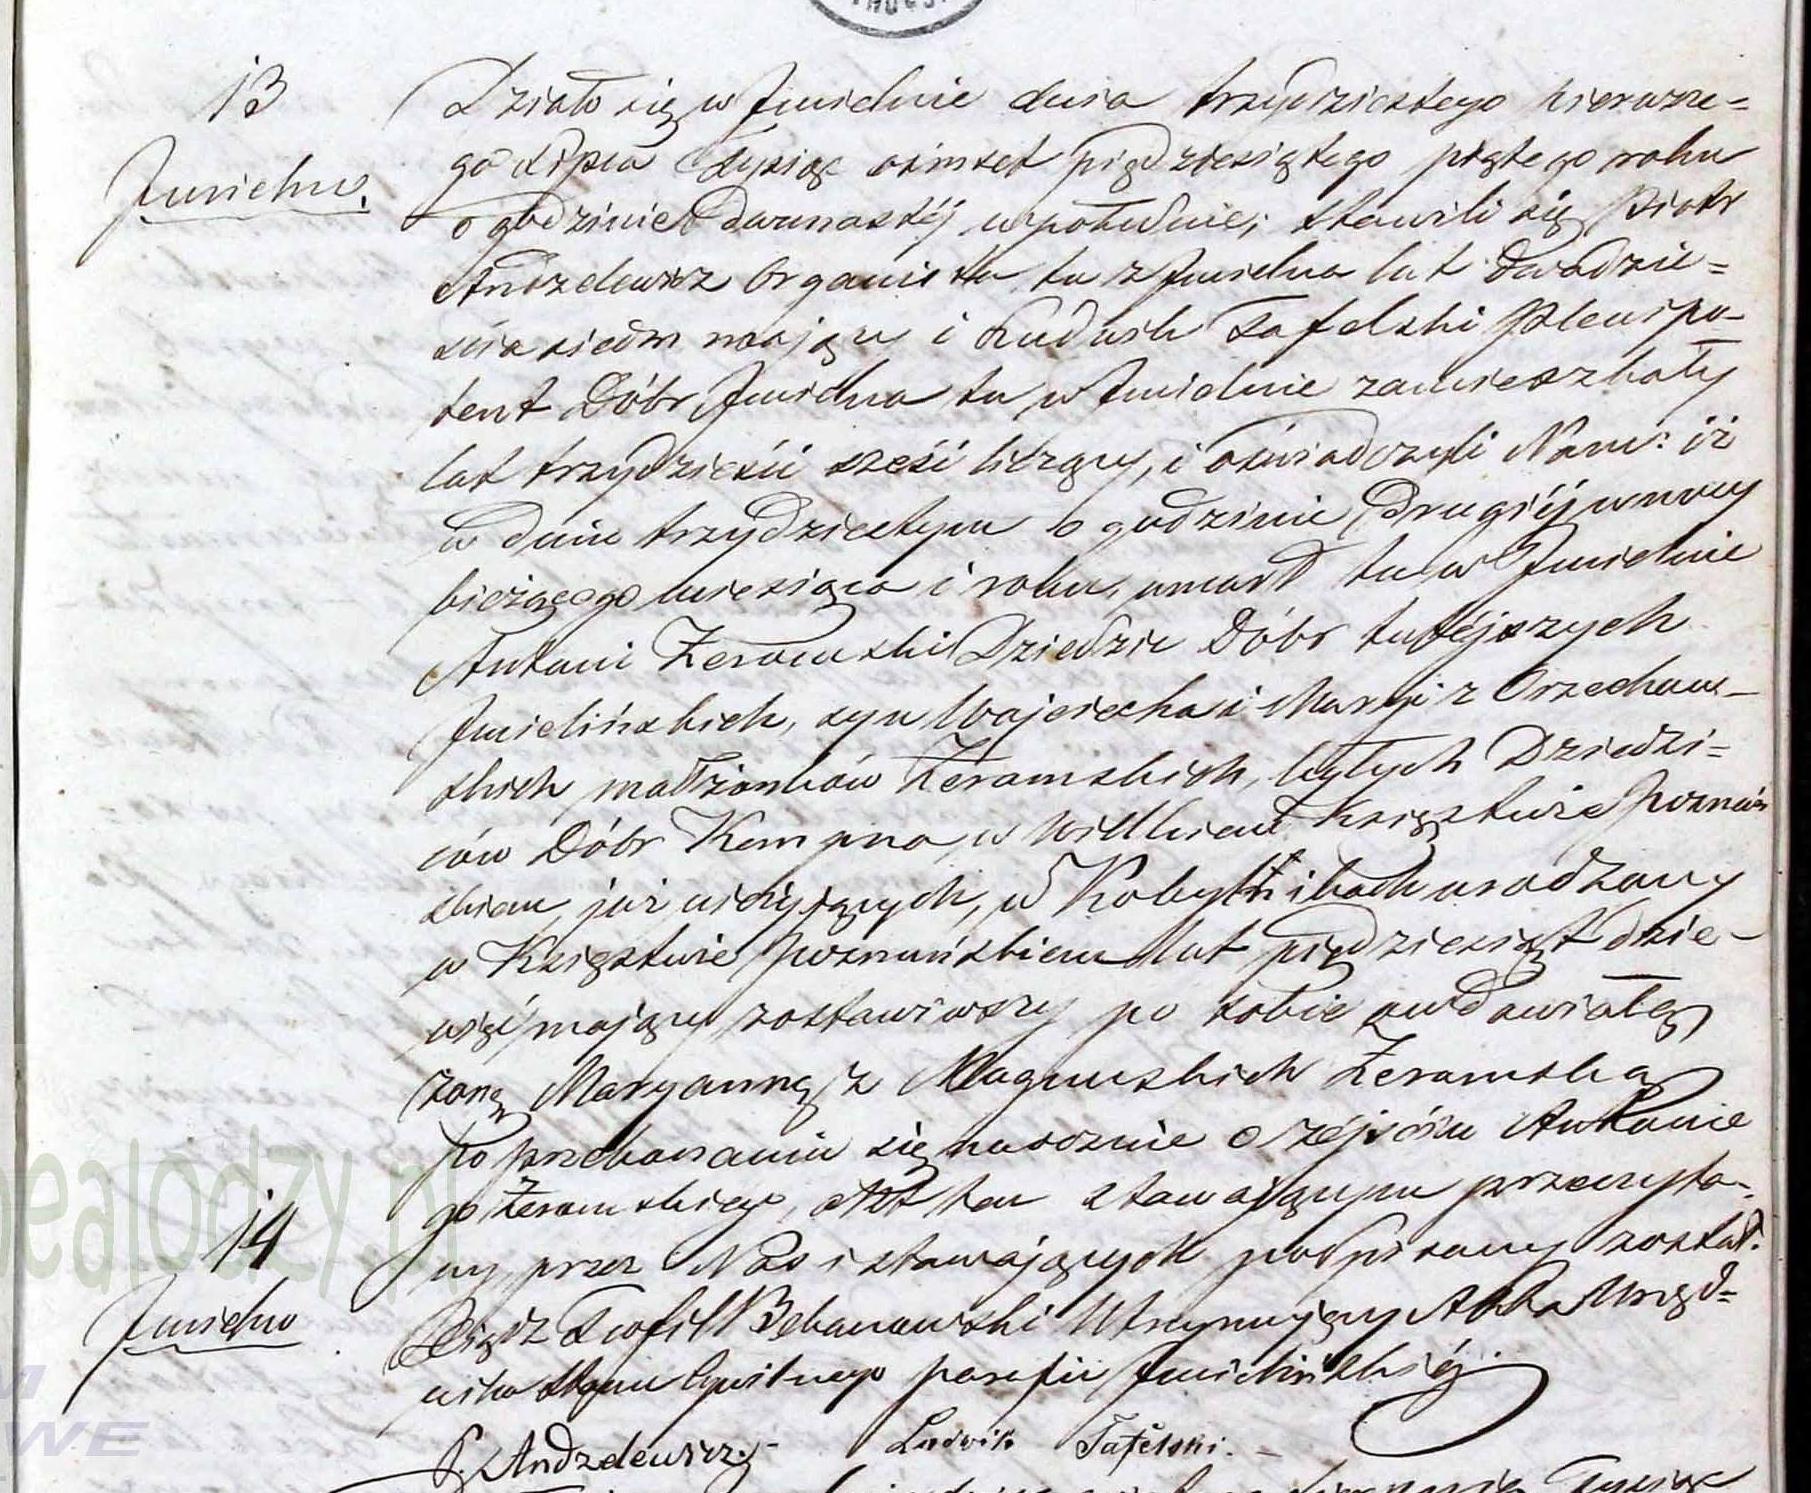 13
Imielno.
Działo się w Imielnie dnia trzydziestego pierwsze=
go Lipca tysiąc ośmset pięćdziesiątego piątego roku
o godzinie dwunastéj w południe; stawili się Piotr
Andzelewicz Organista tu z Imielna lat dwadzie=
ścia siedm mający i Ludwik Tafelski Plenipo-
tent Dóbr Imielna tu w Imielnie zamieszkały
lat trzydzieści sześć liczący, i oświadczyli Nam: iż
w dniu trzydziestym o godzinie drugiéj w nocy
bieżącego miesiąca i roku, umarł tu w Imielnie
Antoni Żeromski Dziedzic Dóbr tutéjszych
Imielińskich, syn Wojciecha i Maryi z Orzechow-
skich małżonków Żeromskich, byłych Dziedzi=
ców Dóbr Kempna w Wielkiem Księstwie Poznań
skiem, już nieżyjących, w Kobylnikach urodzony
w Księstwie Poznańskiem lat pięćdziesiąt dzie-
więć mający zostawiwszy po sobie owdowiałą
żonę Maryannę z Magnuskich Żeromską
Po przekonaniu się naocznie o zejściu Antonie
go Żeromskiego, Akt ten stawającym przeczyta-
ny, przez Nas i stawających podpisany został.
Xiądz Teofil Utrzymujący Akta Urzęd=
nika Stanu Cywilnego parafii Imielińskiéj.
P. Andzelewicz. Ludwik Tafelski.
14
Imielno
tysiąc